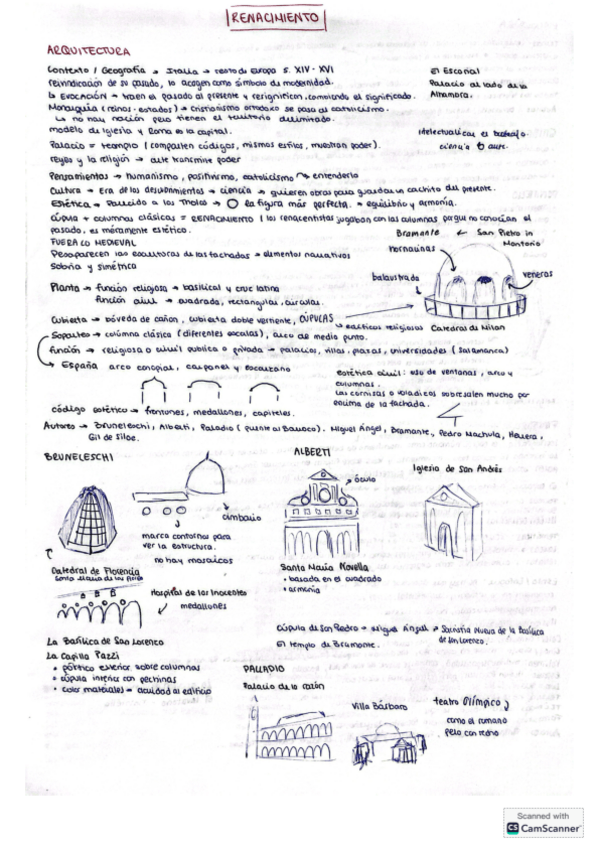 RENACIMIENTO
ARQUITECTURA
Contexto / Geografía → Italia → resto de Europa s. XIV - XVI
reivindicación de su pasado, lo acogen como símbolo de modernidad.
↳ EVOCACIÓN → traen el pasado al presente y resignifican, cambiando el significado.
Monarquía (reinos - estados) → cristianismo ortodoxo se pasa al catolicismo.
↳ no hay nación pero tienen el territorio delimitado.
modelo de iglesia y Roma es la capital.
El Escorial
Palacio al lado de la Alhambra.
Palacio = templo (comparten códigos, mismos estilos, muestran poder).
reyes y la religión → arte transmite poder
Intelectualizar el trabajo.
ciencia arte.
Pensamientos → humanismo, positivismo, catolicismo → entenderlo
Cultura → era de los descubrimientos → ciencia → quieren obras para guardar un cachito del presente.
Estética → Parecido a los → la figura más perfecta. → equilibrio y armonía.
cúpula + columnas clásicas = RENACIMIENTO / los renacentistas jugaban con las columnas porque no conocían el
pasado, es meramente estético.
FUERA lo MEDIEVAL
Desaparecen las esculturas de las fachadas → elementos narrativos
Sobria y simétrica
Bramante ← San Pietro in Montorio
hornacinas
balaustrada
veneras
Planta → función religiosa → basilical y cruz latina
función civil → cuadrada, rectangular, circular.
Cubierta → bóveda de cañón, cubierta doble vertiente, CÚPULAS
↳ edificios religiosos Catedral de Milán
Soportes → columna clásica (diferentes escalas), arco de medio punto.
función → religiosa o civil pública o privada → palacios, villas, plazas, universidades (Salamanca)
↳ España arco conopial, carpanel y escarzano
estética civil: uso de ventanas, arco y
columnas.
Las cornisas o voladizos sobresalen mucho por
encima de la fachada.
código estético → frontones, medallones, capiteles.
Autores → Bruneleschi, Alberti, Paladio (puente al Barroco). Miguel Ángel, Bramante, Pedro Machuca, Herrera,
Gil de Siloe.
BRUNELESCHI
ALBERTI
Iglesia de San Andrés
óculo
cimborio
marca contornos para
ver la estructura.
no hay mosaicos
Catedral de Florencia
Santa María de las Flores
Santa María Novella
• basada en el cuadrado
• armonía
Hospital de los Inocentes
medallones
Cúpula de San Pedro → Miguel Ángel → Sacristía Nueva de la Basílica
de San Lorenzo.
El templo de Bramante.
La Basílica de San Lorenzo
La Capilla Pazzi
• pórtico exterior sobre columnas
• cúpula interior con pechinas
• color materiales = acuidad al edificio
PALLADIO
Palacio de la razón
Villa Bárbaro
teatro Olímpico
como el romano
pero con techo
Scanned with
CS CamScanner